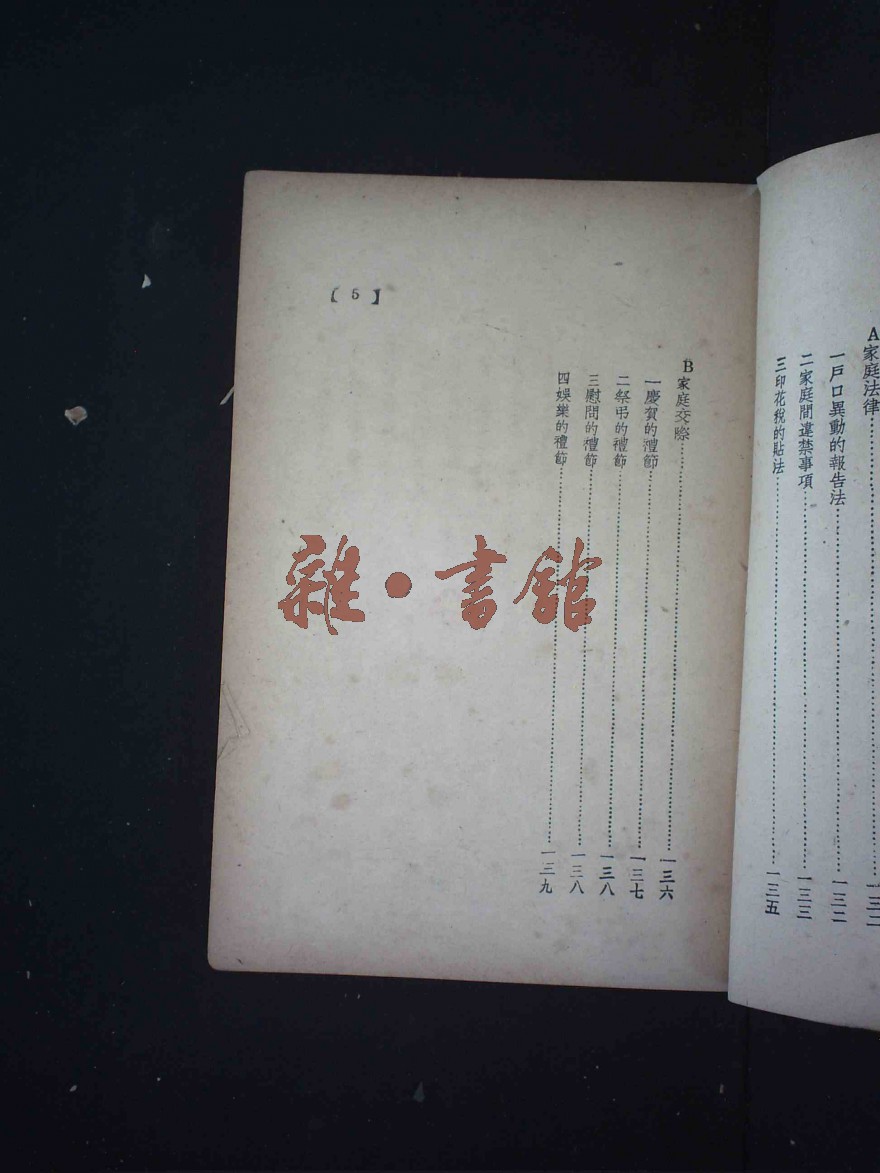 A家庭法律……一三二
一戶口異動的報告法……一三二
二家庭間違禁事項……一三三
三印花稅的貼法……一三五
【5】
B家庭交際……一三六
一慶賀的禮節……一三七
二祭弔的禮節……一三八
三慰問的禮節……一三八
四娛樂的禮節……一三九
雜·書館